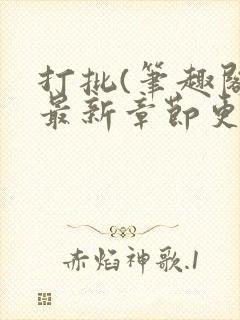 打批(筆趣閣
最新章節更
赤焰神歌.1